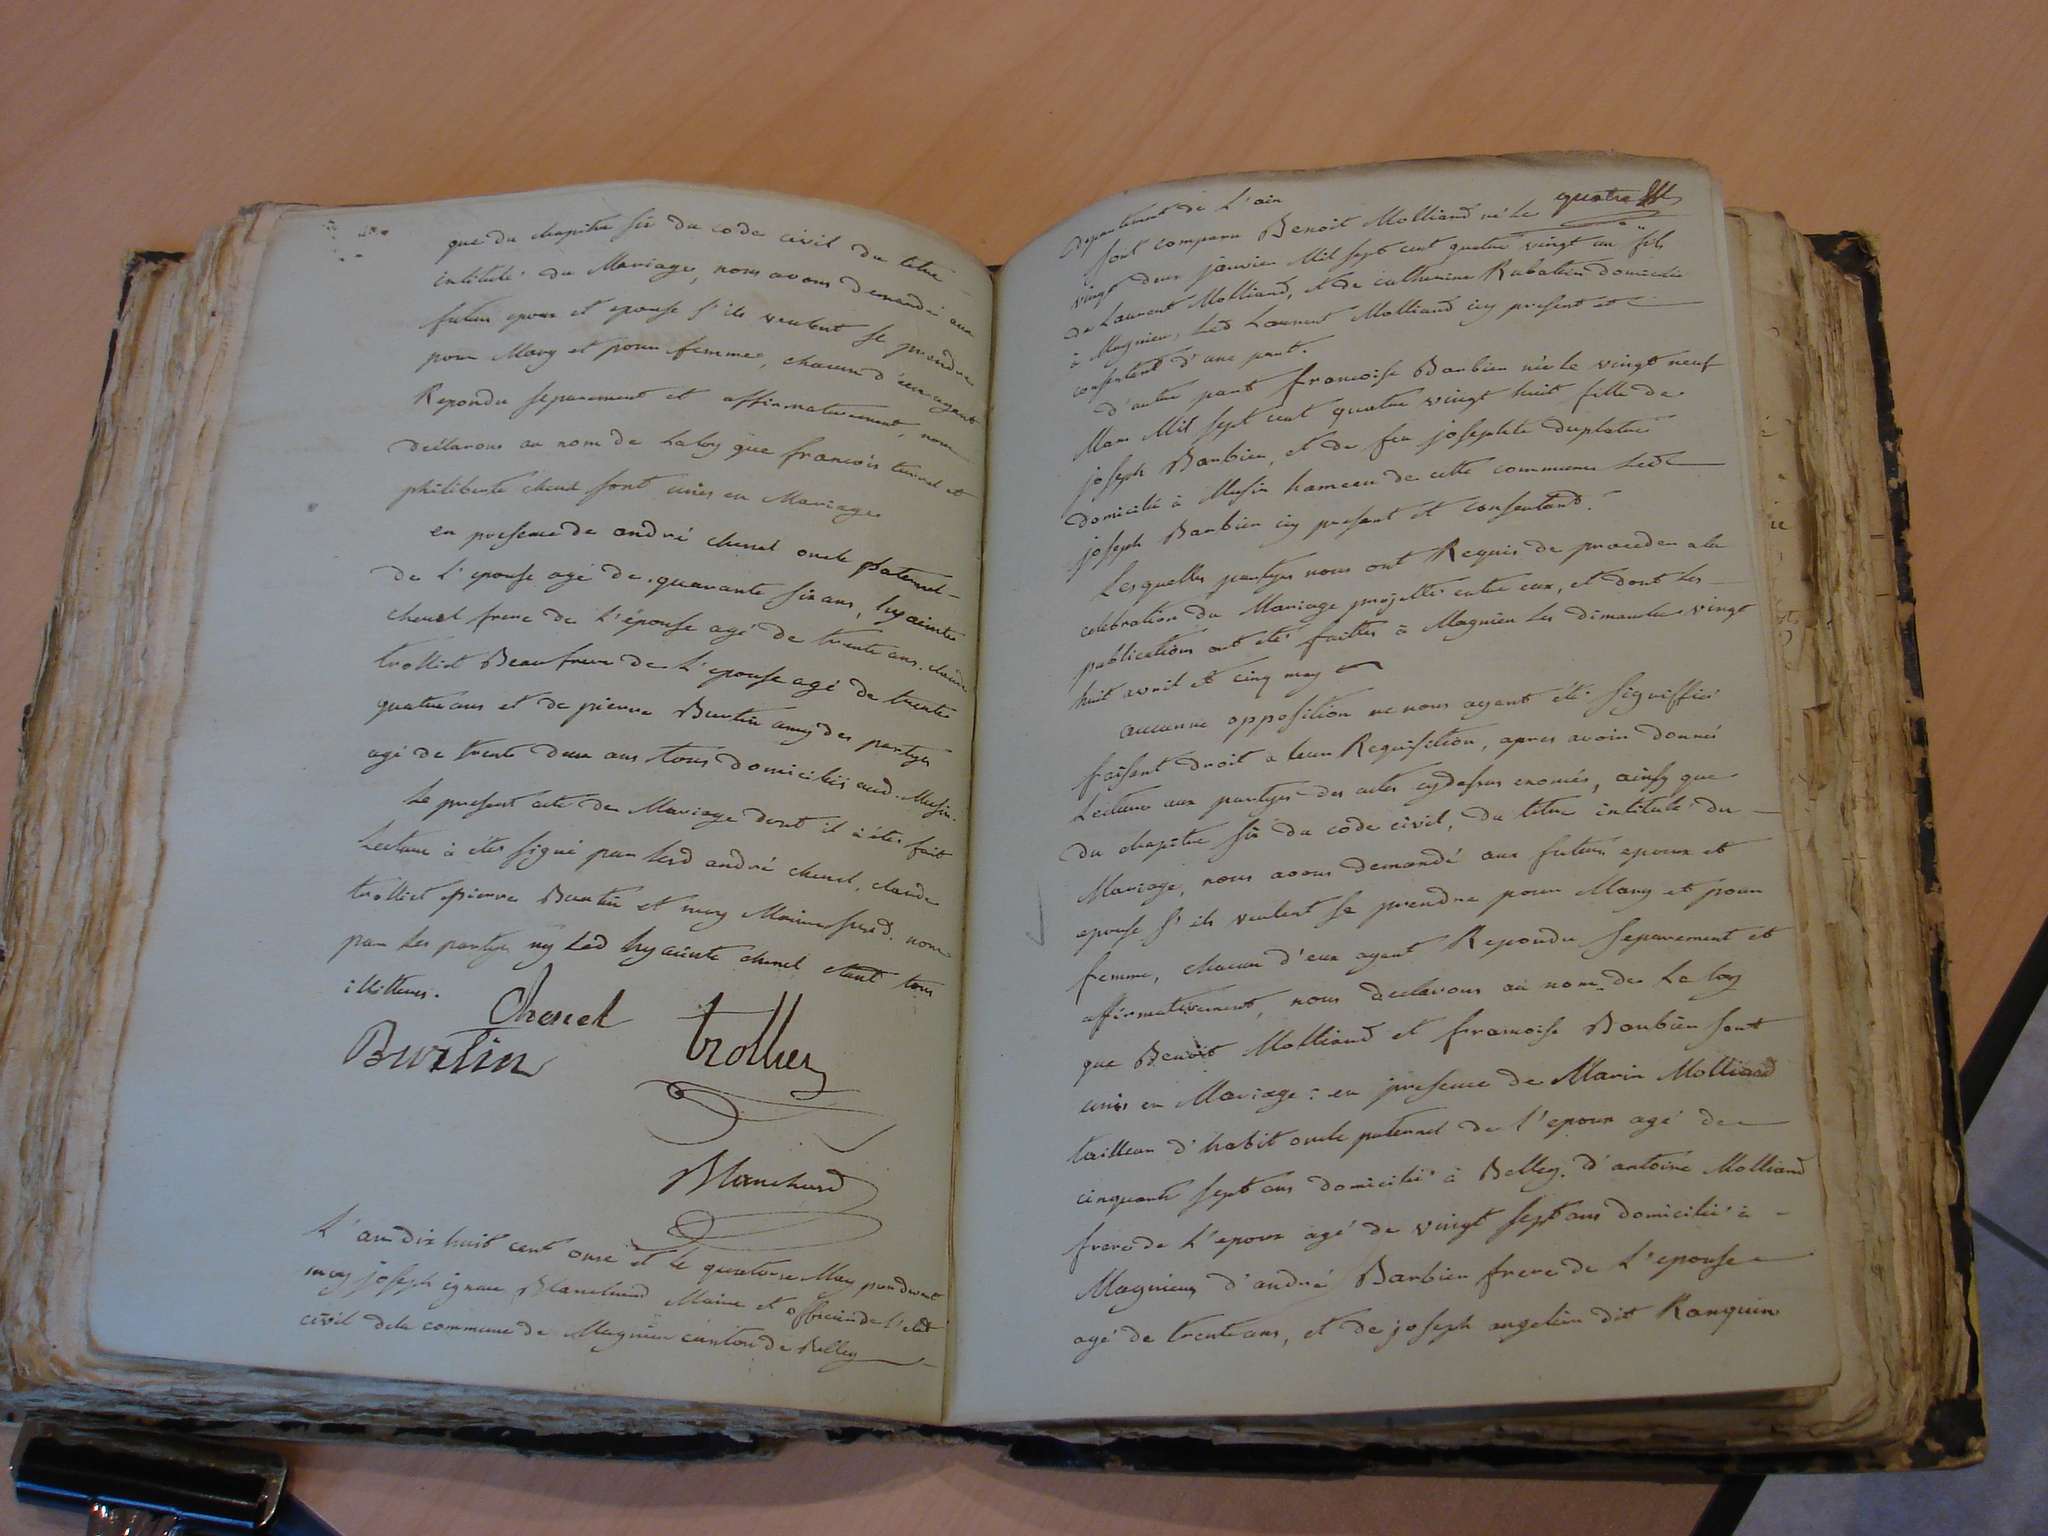 que du chapitre six du code civil du titre
intitulé du Mariage, nous avons demandé aux
futur epoux et epouse s'ils veulent se prendre
pour Mary et pour femme, chacun d'eux ayant
Repondu separement et affirmativement, nous
declarons au nom de La loy que francois et
philiberte chenel sont unis en Mariage
en presence de andré chenel oncle paternel
de L'epouse agé de quarante six ans, hyacinte
chenel frere de L'épouse agé de trente ans, claude
trolliet Beaufrere de L'epouse agé de trente
quatre ans et de pierre Burtin amy des partyes
agé de trente deux ans tous domiciliés aud. Musin.
Le present acte de Mariage dont il à étés fait
Lecture à étés signé par Lesd andré chenel, claude
trolliet pierre Burtin et moy Maire susd. non
par Les partyes ny Led hyacinte chenel étant tous
illitterés.
Chenel trollier
Burtin
Blanchard
L'an dix huit cent onse et le quatorse May pardevant
moy joseph ignace Blanchard Maire et officier de l'etat
civil dela commune de Magnieu canton de Belley
quatre
departement de L'ain
sont comparu Benoit Molliand né le
vingt deux janvier Mil sept cent quatre vingt un fils
de Laurent Molliand, et de catherine Rubatin domicilié
à Magnieu, Led Laurent Molliand icy present et
consentent d'une part.
d'autre part francoise Barbier née le vingt neuf
Mars Mil sept cent quatre vingt huit fille de
joseph Barbier, et de feu josephte duplatre
domicilié à Musin hameau de cette commune Led
joseph Barbier icy present et consentant.
Lesquelles partyes nous ont Requis de proceder a la
celebration du Mariage projetté entre eux, et dont Les
publications ont étés faittes à Magnieu Les dimanches vingt
huit avril et cinq may
aucunne opposition ne nous ayant été signiffiée
faisant droit a leur Requisition, apres avoir donnés
Lecture aux partyes des actes cydessus enoncés, ainsy que
du chapitre six du code civil, du titre intitulé du
Mariage, nous avons demandé aux futurs epoux et
epouse s'ils veulent se prendre pour Mary et pour
femme, chacun d'eux ayant Repondu separement et
affirmativement, nous declarons au nom de La loy
que Benoit Molliand et francoise Barbier sont
unis en Mariage: en presence de Marin Molliand
tailleur d'habit oncle paternel de l'epoux agé de
cinquante sept ans domicilié à Belley. d'antoine Molliand
frere de L'epoux agé de vingt sept ans domicilié à
Magnieu, d'andré Barbier frere de L'epouse
agé de trente ans, et de joseph angelier dit Ranquin